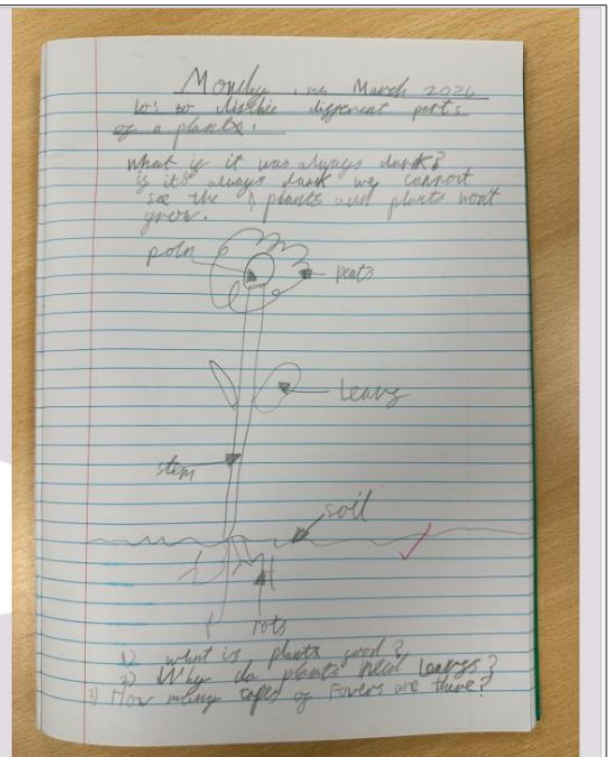 Monday March 2024
Los to discbie different parts
of a plants.
what if it was always dark?
if it's always dark we cannot
see the plants and plants won't
grow.
poln
peats
Leavs
stem
soil
rots
1) what is plants food?
2) Why do plants need leavs?
3) How many tapes of Fovers are there?